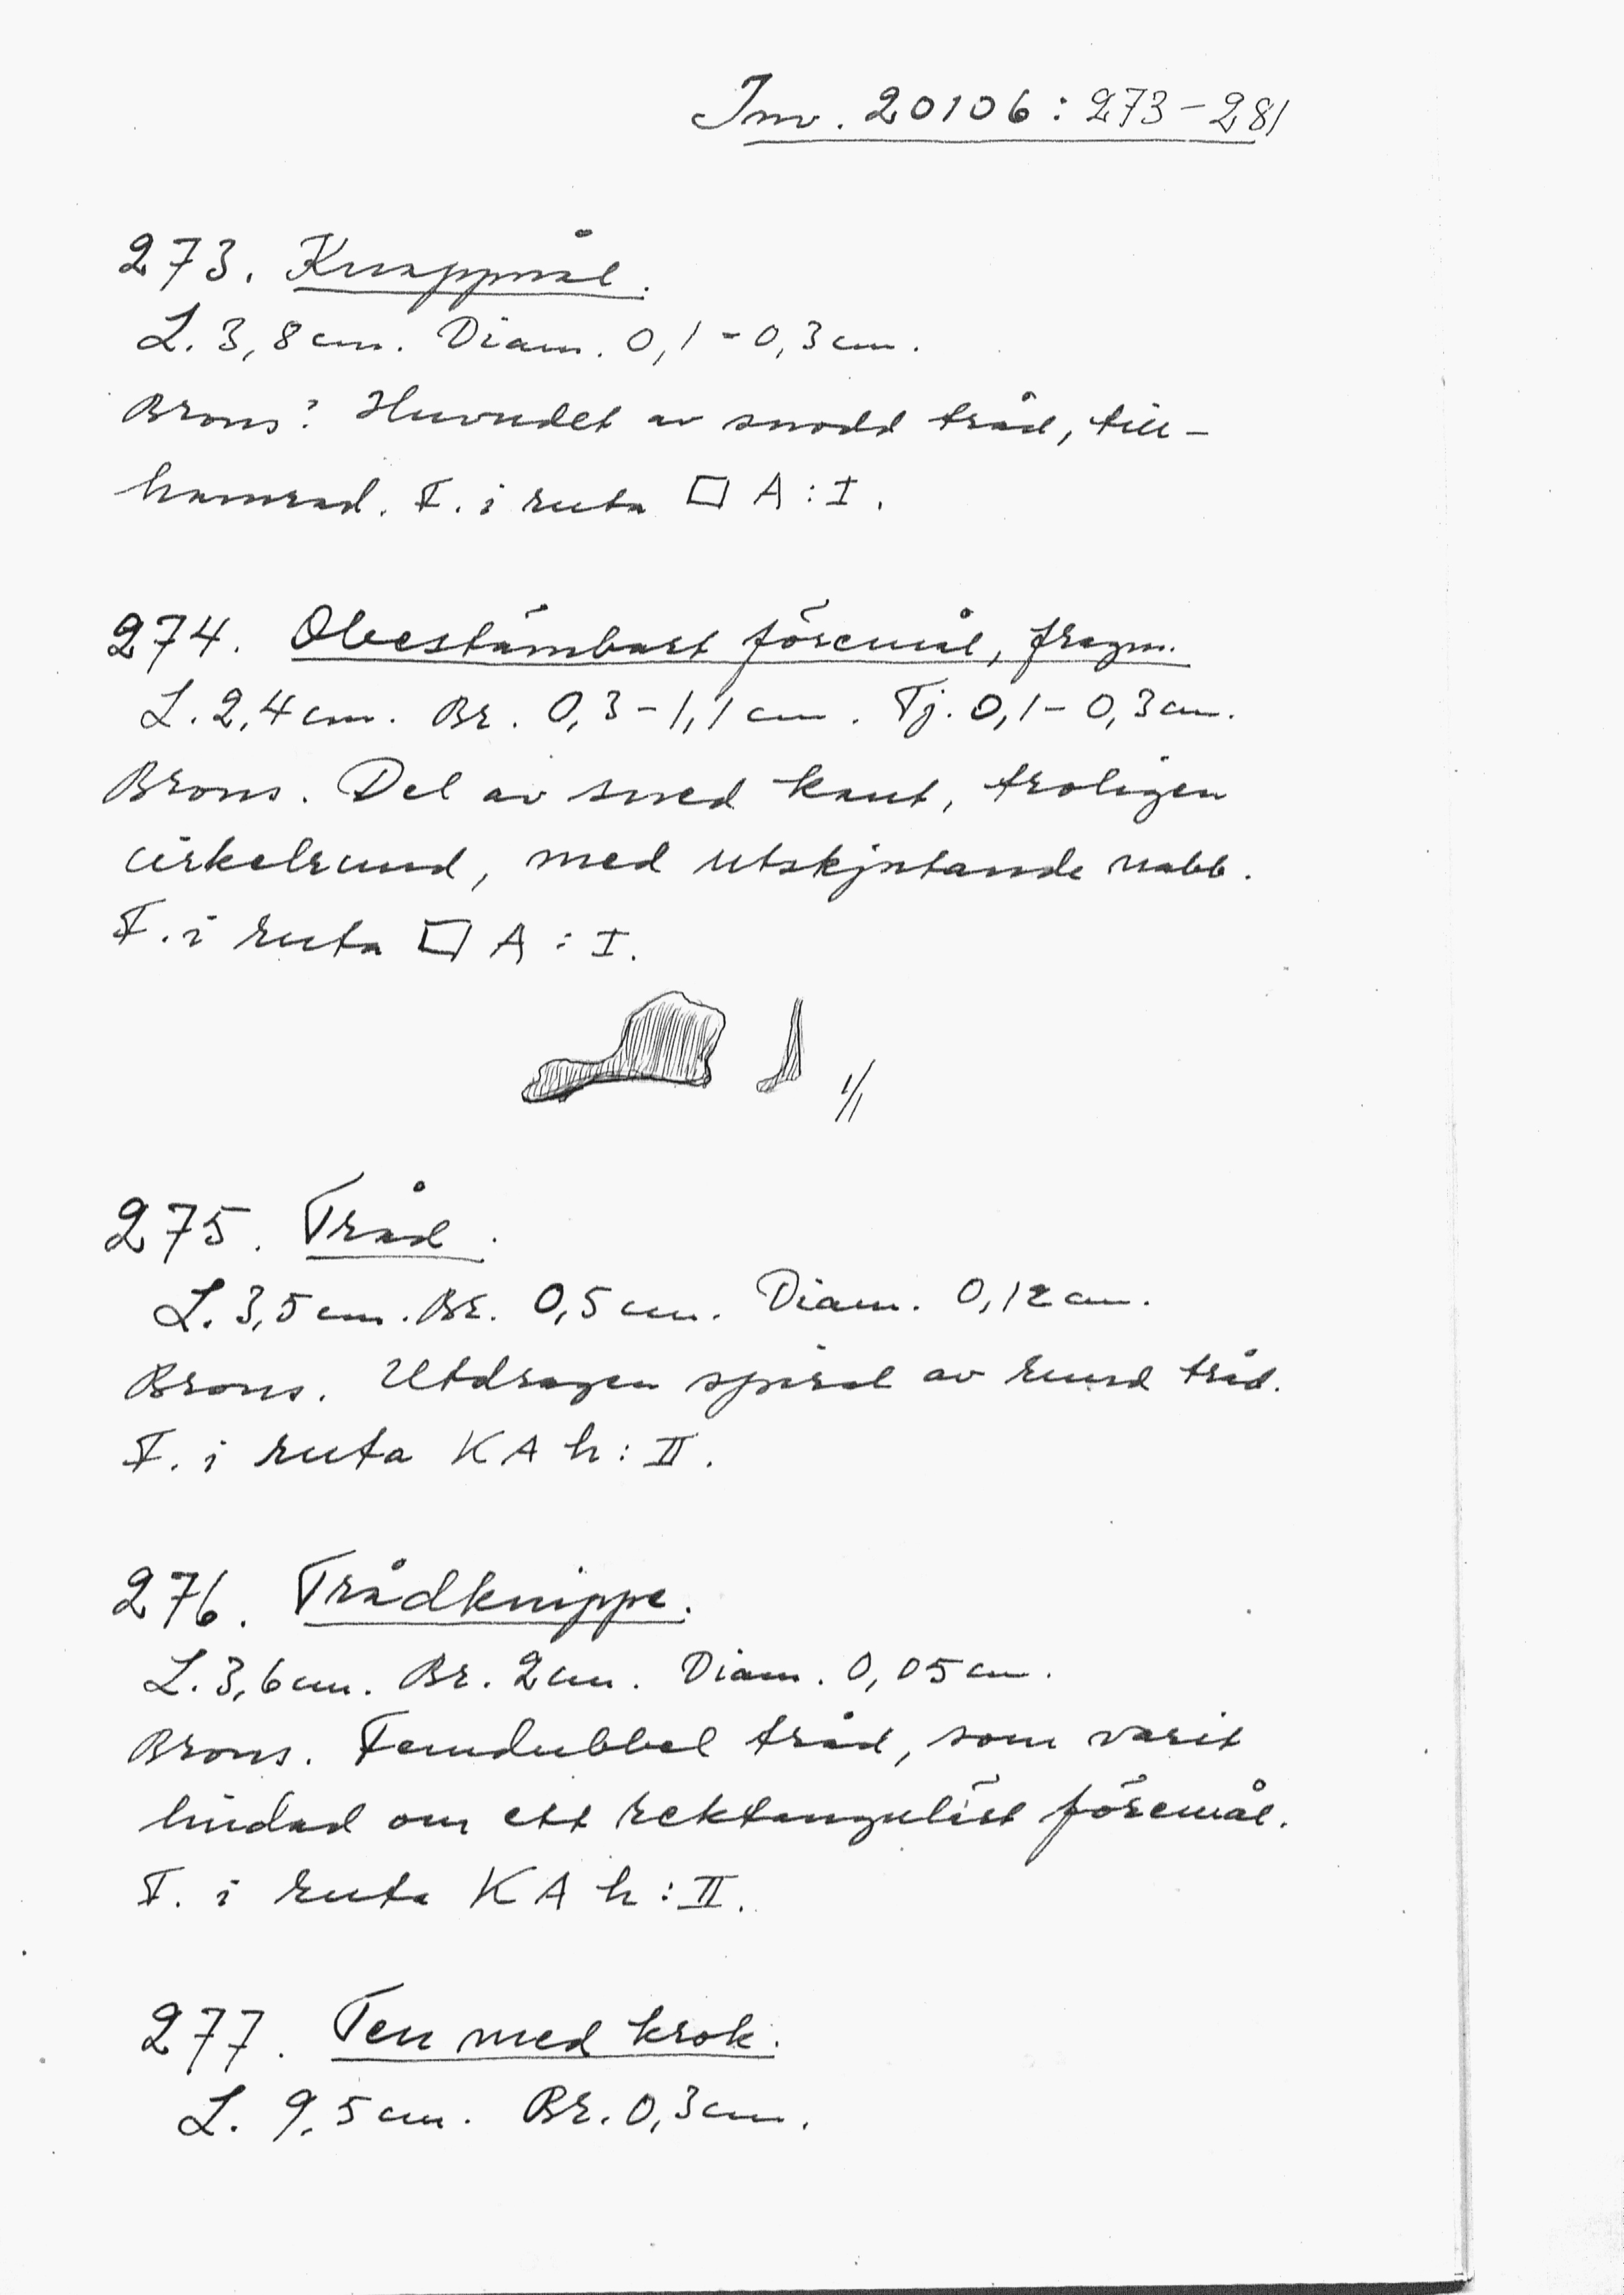 Inv. 20106: 273-281
273. Knappnål.
L. 3,8 cm. Diam. 0,1-0,3 cm.
Brons? Huvudet av snodd tråd, till-
hamrad. F. i ruta □ A: I.
274. Obestämbart föremål, fragm.
L. 2,4 cm. Br. 0,3-1,1 cm. Tj. 0,1-0,3 cm.
Brons. Del av sned kant, troligen
cirkelrund, med utskjutande nabb.
F. i ruta □ A: I.
1/1
275. Tråd.
L. 3,5 cm. Br. 0,5 cm. Diam. 0,12 cm.
Brons. Utdragen spiral av rund tråd.
F. i ruta K A h: II.
276. Trådknippe.
L. 3,6 cm. Br. 2 cm. Diam. 0,05 cm.
Brons. Femdubbel tråd, som varit
lindad om ett rektangulärt föremål.
F. i ruta K A h: II.
277. Ten med krok.
L. 9,5 cm. Br. 0,3 cm.